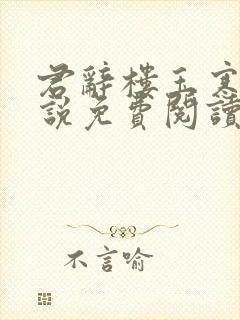 君辭樓玉寒
說免費閱讀
不言喻